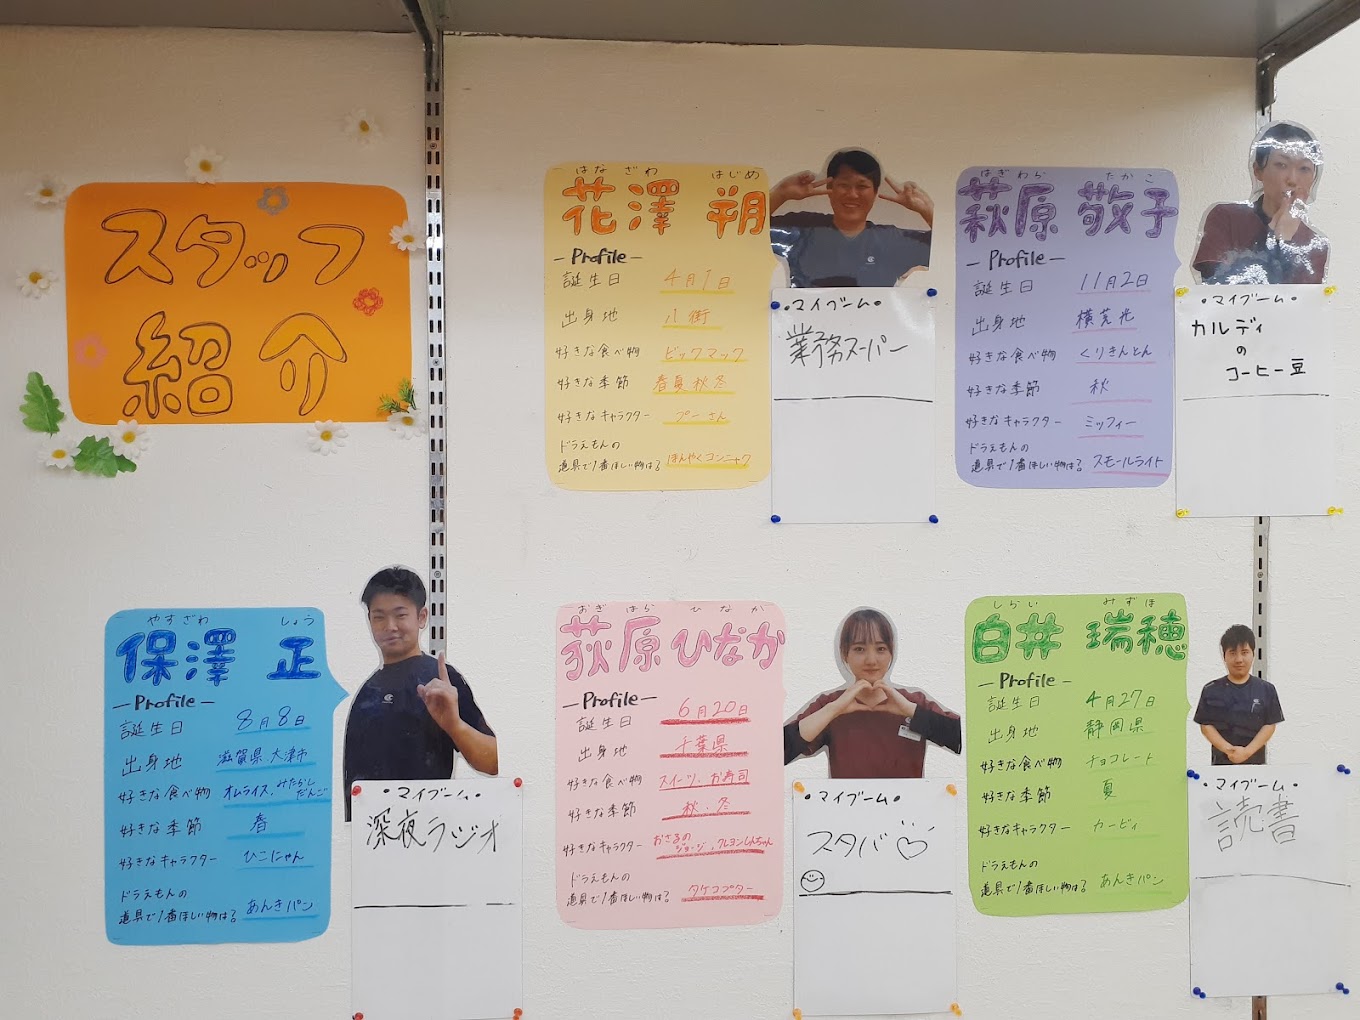 スタッフ
紹介
はなざわ はじめ
花澤 朔
ーProfileー
誕生日 4月1日
出身地 八街
好きな食べ物 ビックマック
好きな季節 春夏秋冬
好きなキャラクター プーさん
ドラえもんの
道具で1番ほしい物は? ほんやくコンニャク
・マイブーム・
業務スーパー
はぎわら たかこ
萩原 敬子
ーProfileー
誕生日 11月2日
出身地 横芝光
好きな食べ物 くりきんとん
好きな季節 秋
好きなキャラクター ミッフィー
ドラえもんの
道具で1番ほしい物は? スモールライト
・マイブーム・
カルディ
の
コーヒー豆
やすざわ しょう
保澤 正
ーProfileー
誕生日 8月8日
出身地 滋賀県 大津市
好きな食べ物 オムライス、みたらし
だんご
好きな季節 春
好きなキャラクター ひこにゃん
ドラえもんの
道具で1番ほしい物は? あんきパン
・マイブーム・
深夜ラジオ
おぎはら ひなか
荻原ひなか
ーProfileー
誕生日 6月20日
出身地 千葉県
好きな食べ物 スイーツ、お寿司
好きな季節 秋・冬
好きなキャラクター おさるの
ジョージ、クレヨンしんちゃん
ドラえもんの
道具で1番ほしい物は? タケコプター
・マイブーム・
スタバ♡
しらい みずほ
白井 瑞穂
ーProfileー
誕生日 4月27日
出身地 静岡県
好きな食べ物 チョコレート
好きな季節 夏
好きなキャラクター カービィ
ドラえもんの
道具で1番ほしい物は? あんきパン
・マイブーム・
読書